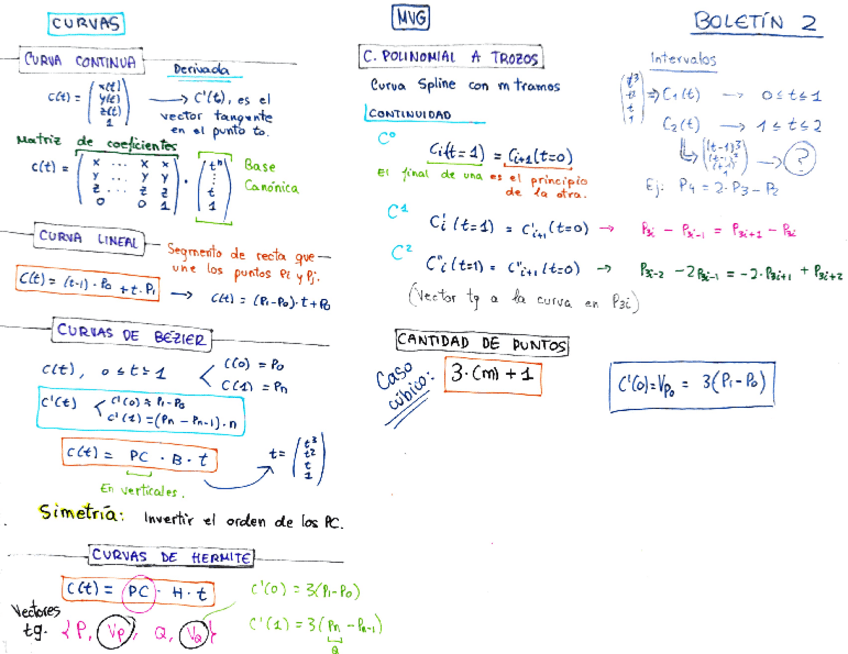 CURVAS
MVG
BOLETÍN 2
CURVA CONTINUA
Derivada
c(t) = (x(t) y(t) z(t) 1) → C'(t), es el
vector tangente
en el punto to.
Matriz de coeficientes
c(t) = (x ... x x
y ... y y
z ... z z
0 0 1) · (t^n : t 1)
Base
Canónica
CURVA LINEAL
Segmento de recta que
une los puntos Pi y Pj.
C(t) = (t-1)·P0 + t·P1 → c(t) = (P1-P0)·t+P0
CURVAS DE BÉZIER
c(t), 0 ≤ t ≤ 1 < C(0) = P0
C(1) = Pn
C'(t) < C'(0) = P1-P0
C'(1) = (Pn - Pn-1)·n
C(t) = PC · B · t
t = (t^3 t^2 t 1)
En verticales.
Simetría: Invertir el orden de los PC.
CURVAS DE HERMITE
C(t) = PC · H · t
C'(0) = 3(P1-P0)
Vectores
tg. {P, Vp, Q, VQ}
C'(1) = 3(Pn - Pn-1)
Q
C. POLINOMIAL A TROZOS
Curva Spline con m tramos
CONTINUIDAD
C^0
Ci(t=1) = Ci+1(t=0)
El final de una es el principio
de la otra.
C^1
C'i(t=1) = C'i+1(t=0) → P3i - P3i-1 = P3i+1 - P3i
C^2
C''i(t=1) = C''i+1(t=0) → P3i-2 - 2P3i-1 = -2·P3i+1 + P3i+2
(Vector tg a la curva en P3i)
CANTIDAD DE PUNTOS
Caso
cúbico: 3·(m)+1
Intervalos
(t^3 t^2 t 1) ⇒ C1(t) → 0 ≤ t ≤ 1
C2(t) → 1 ≤ t ≤ 2
((t-1)^3 (t-1)^2 (t-1) 1) → ?
Ej: P4 = 2·P3 - P2
C'(0) = Vp0 = 3(P1-P0)